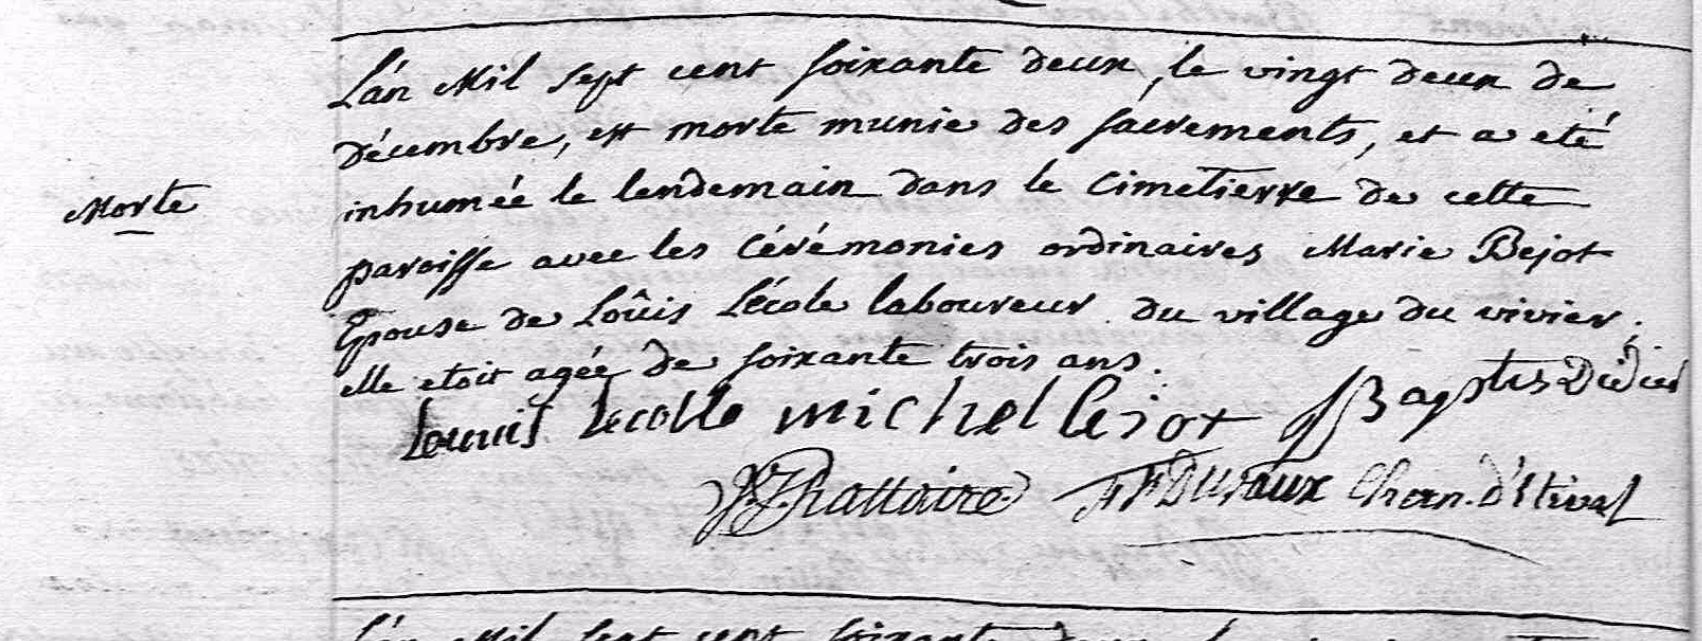 L'an Mil sept cent soixante deux, le vingt deux de
décembre, est morte munie des sacrements, et a eté
inhumée le lendemain dans le cimetierre de cette
Morte
paroisse avec les cérémonies ordinaires Marie Bejot
Epouse de Loûis Lécole laboureur du village du vivier.
elle etoit agée de soixante trois ans.
Louuis Lecolle michel bejot Baptis Didier
Rattaire Duvaux Chan. d'Etival
L'an Mil sept cent soixante